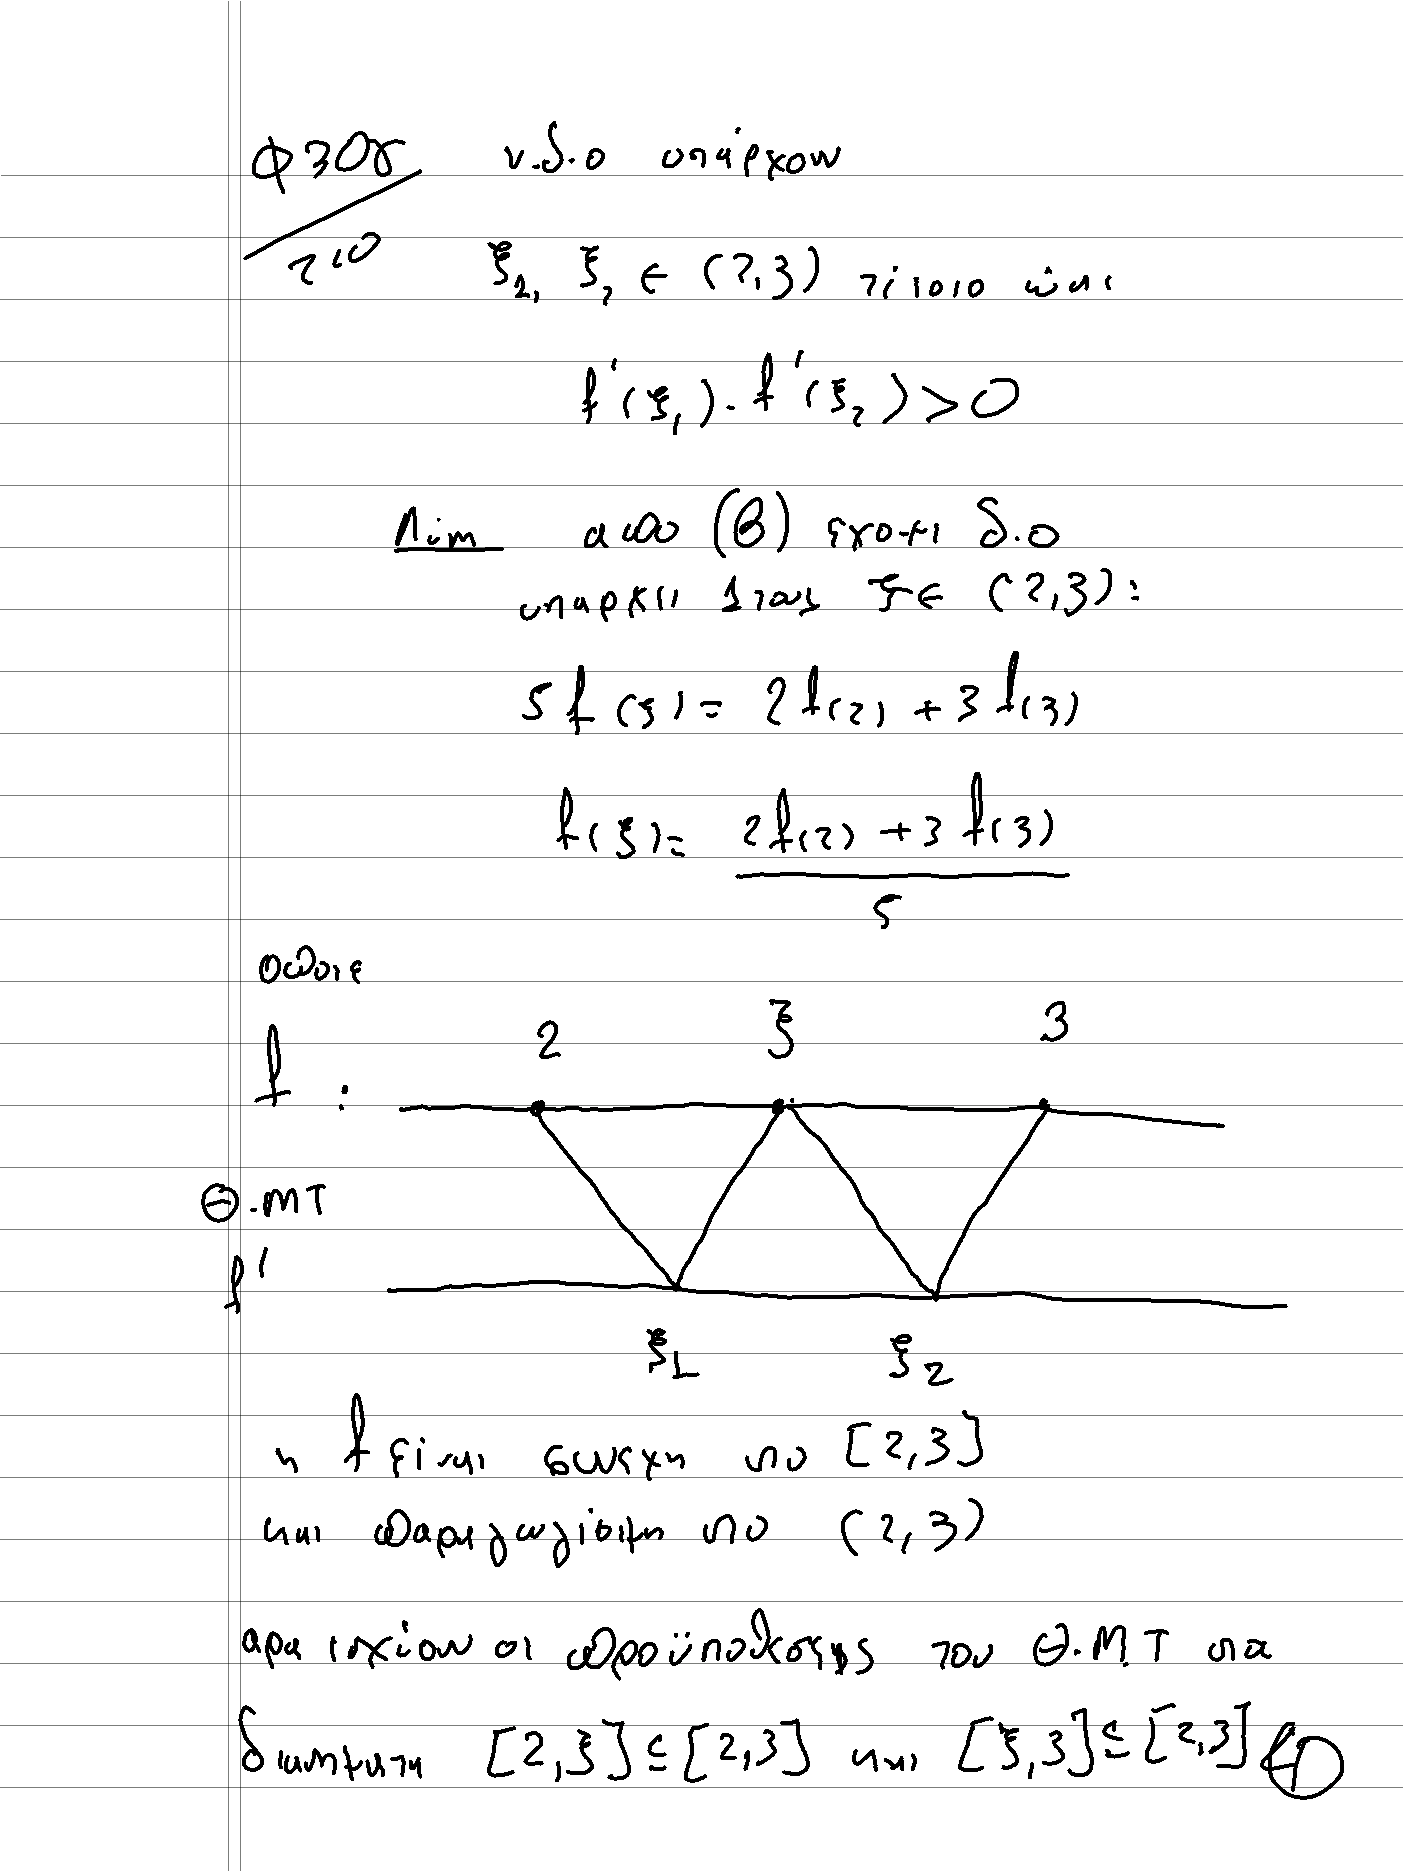 Φ30γ ν.δ.ο υπάρχουν
210
ξ₁, ξ₂ ∈ (2,3) τέτοιο ώστε
f'(ξ₁).f'(ξ₂)>0
Λύση απο (β) έχουμε δ.ο
υπαρχει 1 τουλ ξ ∈ (2,3):
5f(ξ)= 2f(2)+3f(3)
f(ξ)= 2f(2)+3f(3)
5
οποτε
2 ξ 3
f :
Θ.ΜΤ
f'
ξ1 ξ2
η f είναι συνεχη στο [2,3]
και παραγωγίσιμη στο (2,3)
αρα ισχύουν οι προϋποθεσεις του Θ.Μ.Τ στα
διαστηματα [2,ξ]⊆[2,3] και [ξ,3]⊆[2,3]